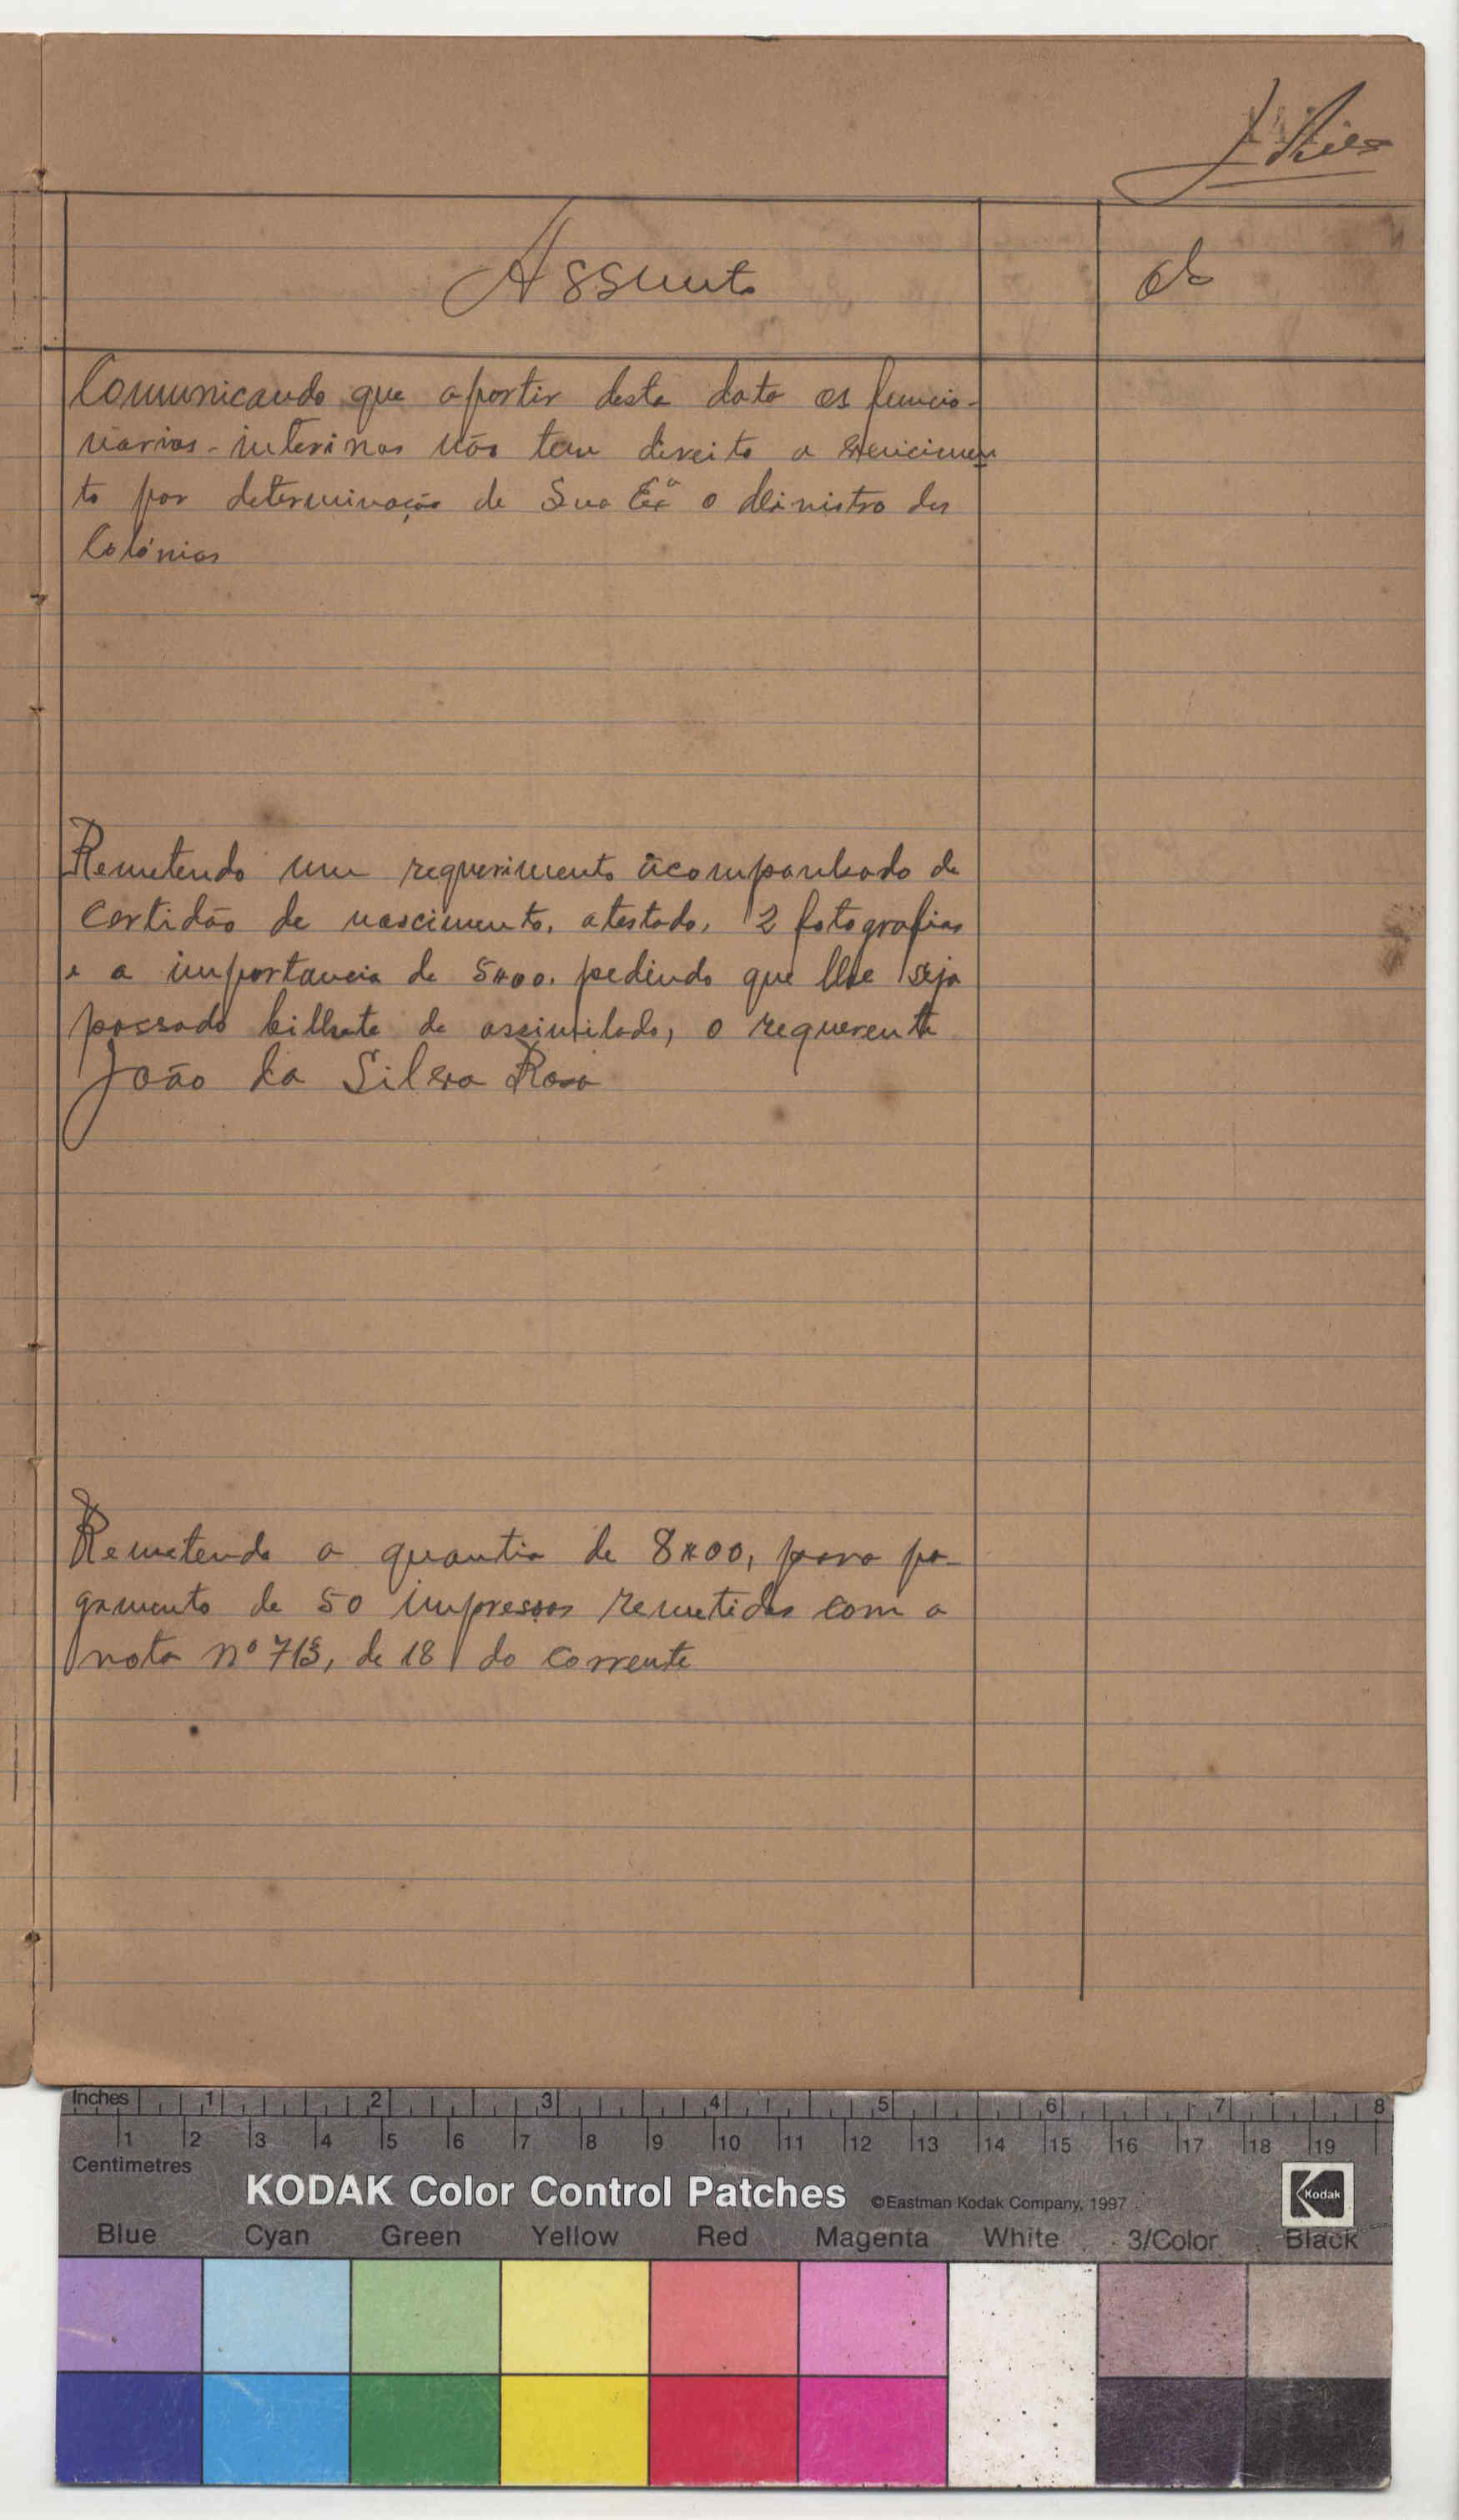 Assunto
Ob
Comunicando que apartir desta data os funcio-
narios-interinos não tem direito a vencimen
to por determinação de Sua Exª o Ministro das
Colónias
Remetendo um requerimento acompanhado de
certidão de nascimento, atestado, 2 fotografias
e a importancia de 5$00, pedindo que lhe seja
passado bilhete de assimilado, o requerente
João da Silva Rosa
Remetendo a quantia de 8$00, para pa-
gamento de 50 impressos remetidos com a
nota nº 713, de 18 do corrente
Inches 1 2 3 4 5 6 7 8
1 2 3 4 5 6 7 8 9 10 11 12 13 14 15 16 17 18 19
Centimetres
KODAK Color Control Patches ©Eastman Kodak Company, 1997 Kodak
Blue Cyan Green Yellow Red Magenta White 3/Color Black